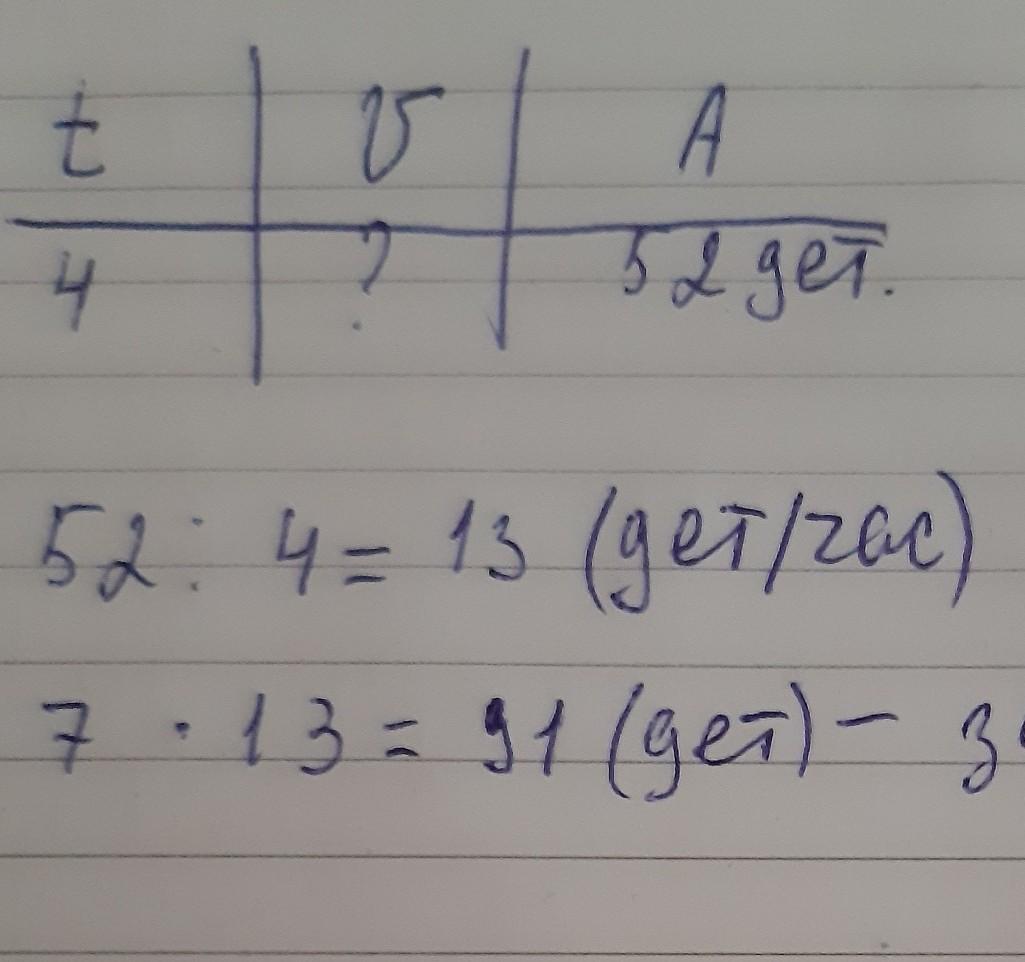 t v A
4 ? 52 дет.
52 : 4 = 13 (дет/час)
7 · 13 = 91 (дет) –